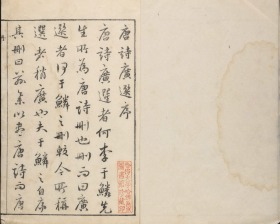 唐詩廣選序
唐詩廣選者何李于鱗先
生所為唐詩刪也刪而曰廣
選者何于鱗之刪較今所稱
選者稍廣也夫于鱗之自序
其刪曰
以盡唐詩而唐